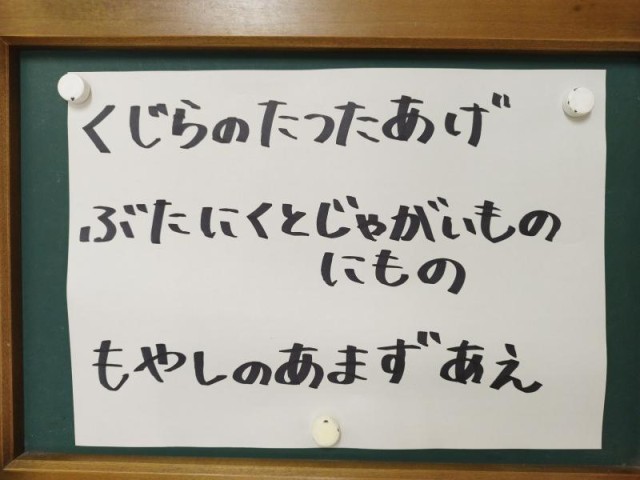 くじらのたつたあげ
ぶたにくとじゃがいもの
にもの
もやしのあまずあえ